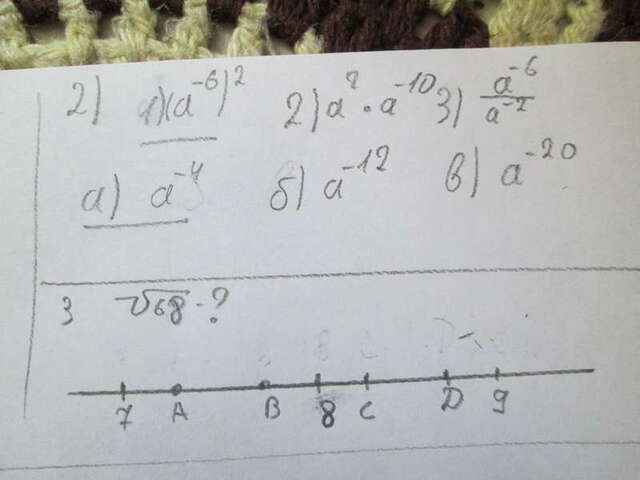 2) 1)(a⁻⁶)² 2) a² · a⁻¹⁰ 3) a⁻⁶/a⁻²
а) a⁻⁴ б) a⁻¹² в) a⁻²⁰
3 √68 - ?
7 A B 8 C D 9